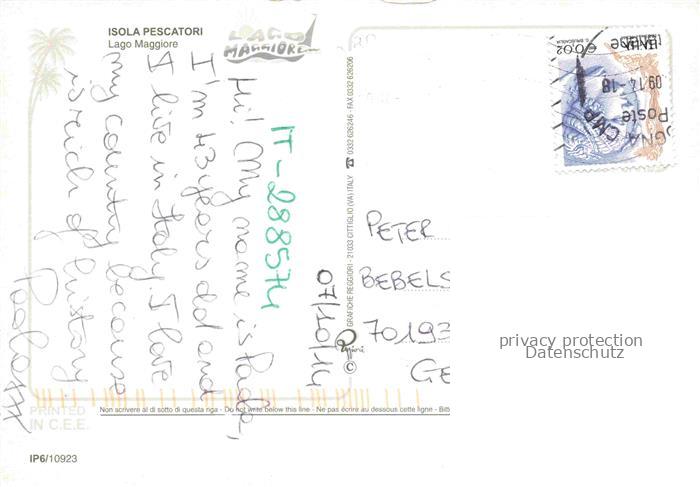 ISOLA PESCATORI
Lago Maggiore
LAGO
MAGGIORE
IT-288574
07/10/14
Hi! My name is Paola,
I'm 43 years old and
I live in Italy. I love
my country because
is rich of history
Paola
GRAFICHE REGGIORI - 21033 CITTIGLIO (VA) ITALY ☎ 0332 626246 - FAX 0332 626206
€0,02
09.14-18
Poste
GNA CMP
PETER
BEBELS
70193
GE
privacy protection
Datenschutz
PRINTED
IN C.E.E.
Non scrivere al di sotto di questa riga - Do not write below this line - Ne pas écrire au dessous cette ligne - Bitt
IP6/10923